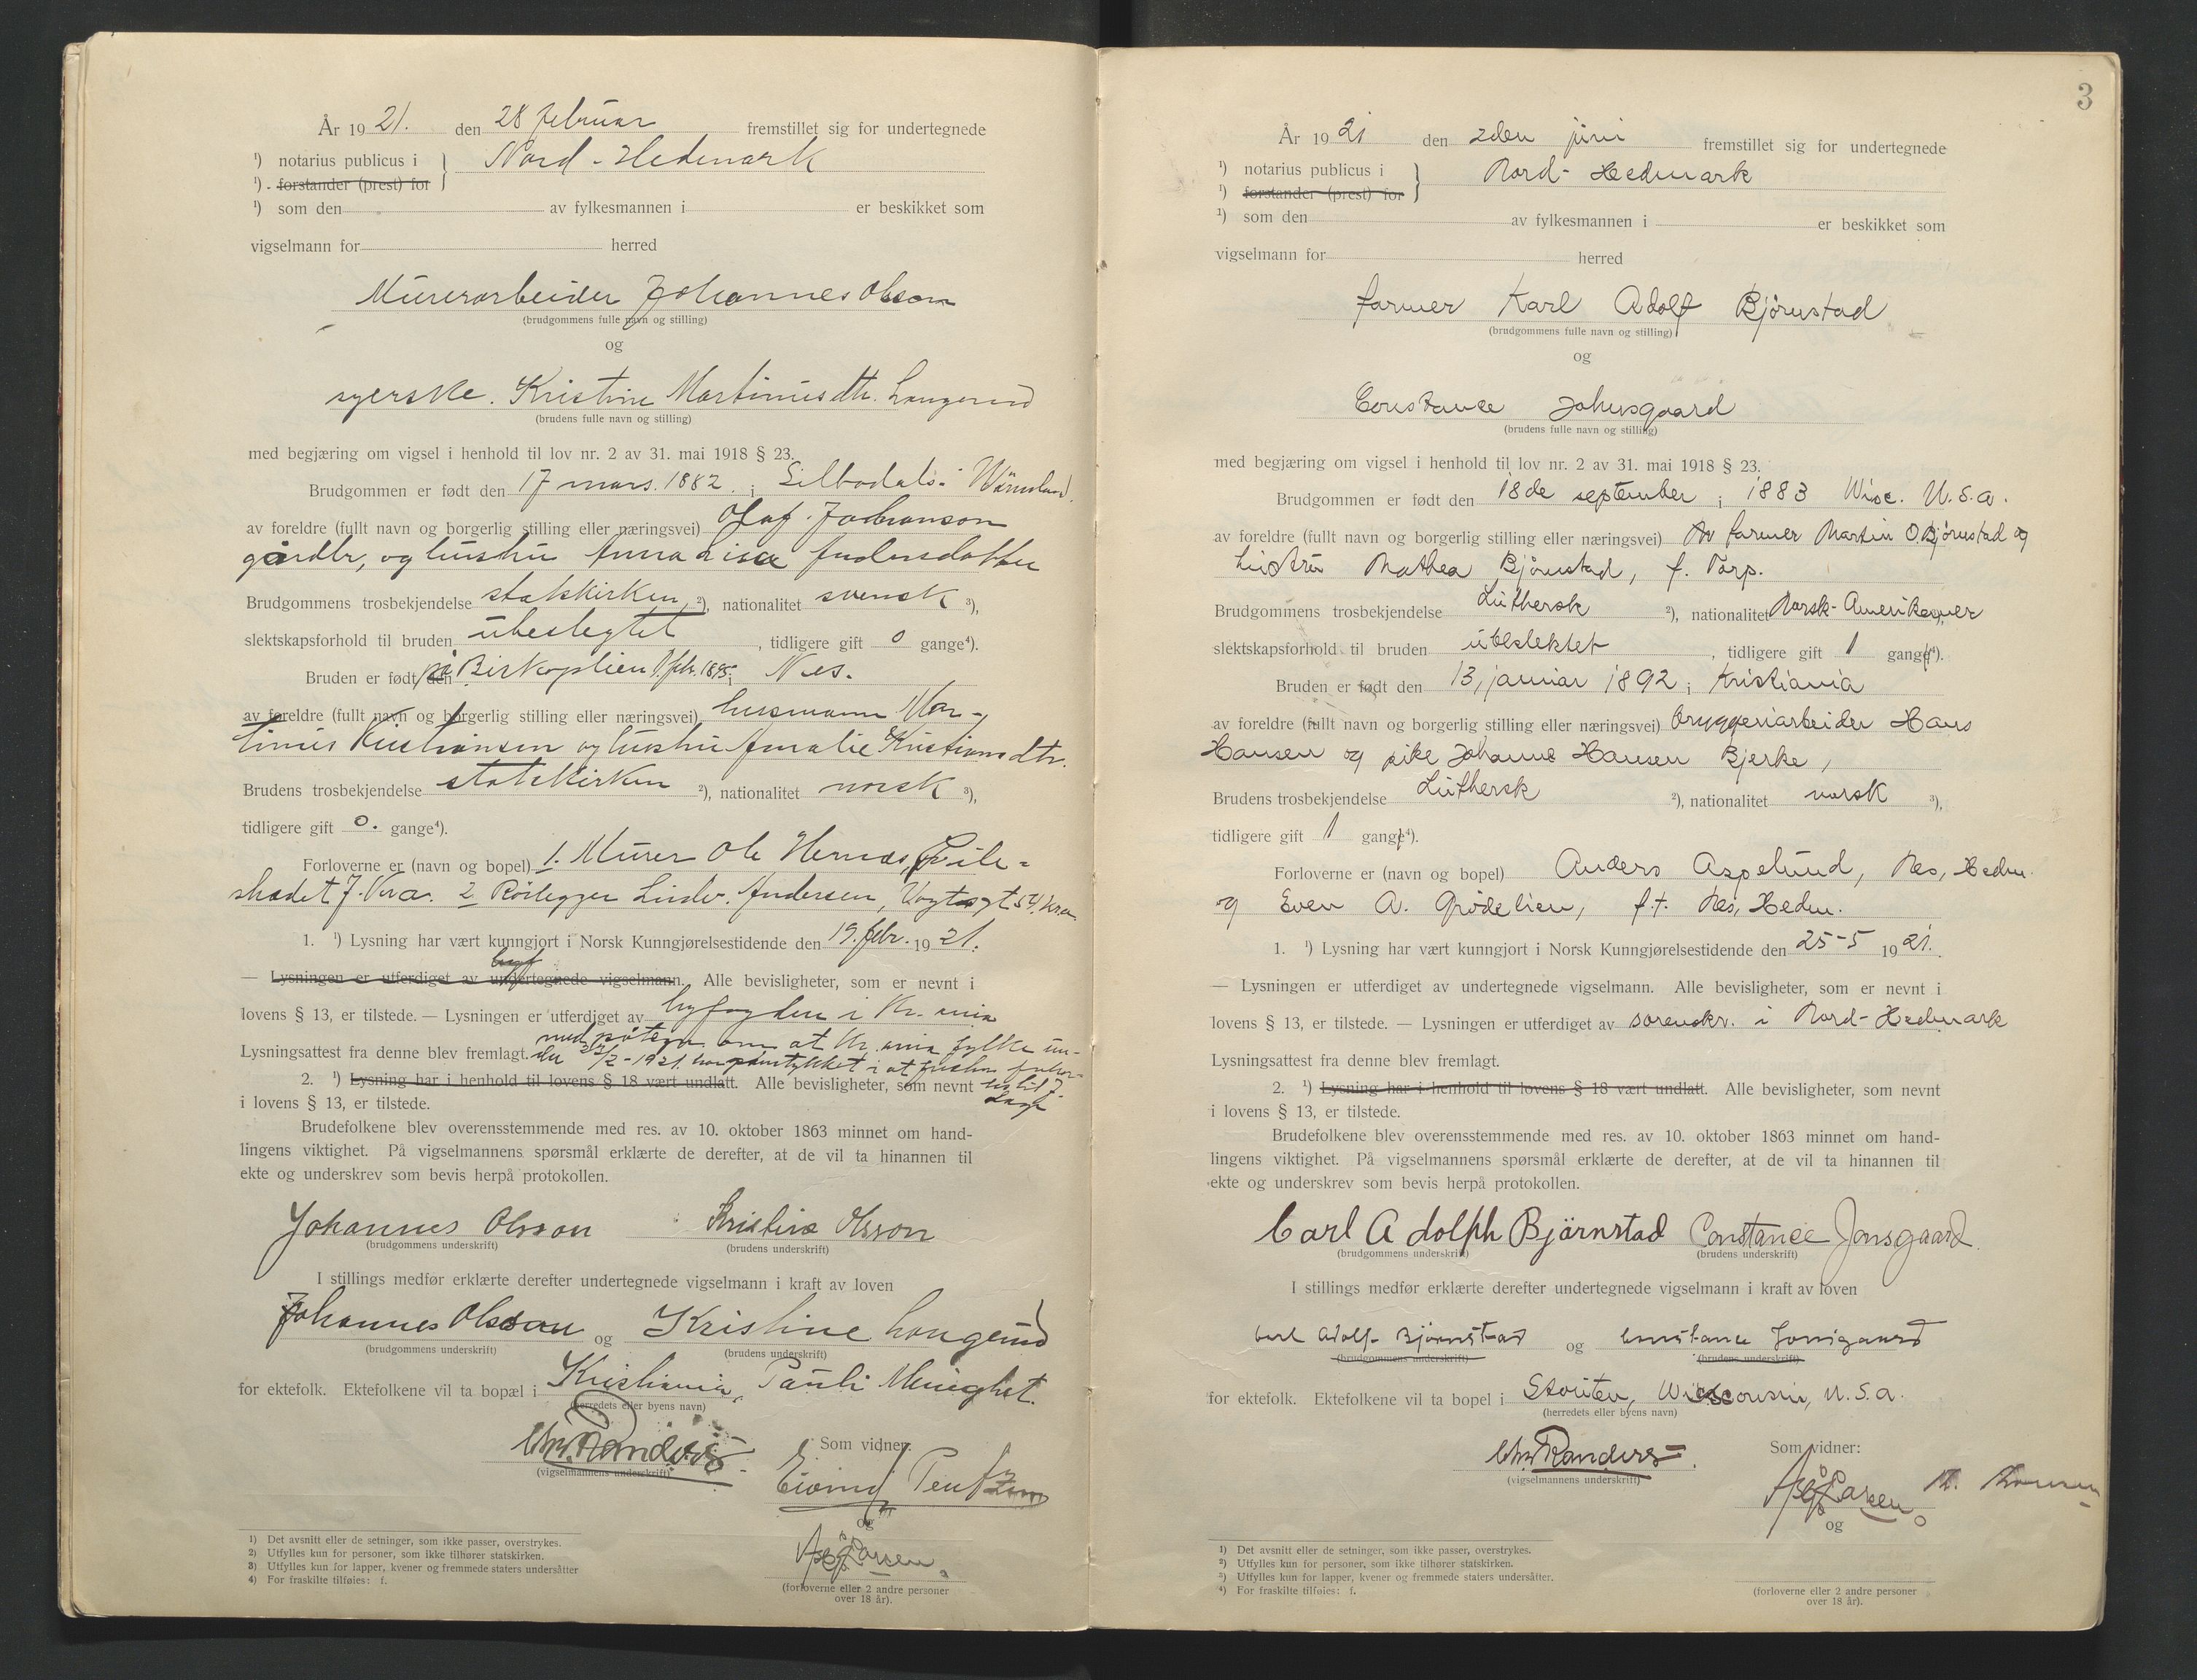 År 1921. den 28 februar fremstillet sig for undertegnede
¹) notarius publicus i } Nord-Hedmark
¹) forstander (prest) for
¹) som den av fylkesmannen i er beskikket som
vigselmann for herred
Murerarbeider Johannes Olsson
(brudgommens fulle navn og stilling)
og
syerske. Kristine Martinusdtr. Langerud
(brudens fulle navn og stilling)
med begjæring om vigsel i henhold til lov nr. 2 av 31. mai 1918 § 23.
Brudgommen er født den 17 mars. 1882. i Silbodals- Wärmland.
av foreldre (fullt navn og borgerlig stilling eller næringsvei) Olaf Johanson
gårdbr, og hustru Anna Lisa Andersdotter
Brudgommens trosbekjendelse statskirken, ²), nationalitet svensk ³),
slektskapsforhold til bruden ubeslegtet, tidligere gift 0 gange⁴).
Bruden er født den på Birkoplien 1 febr. 1895 i Nes.
av foreldre (fullt navn og borgerlig stilling eller næringsvei) husmann Mar-
tinus Kristiansen og hustru Amalie Kristiansdtr.
Brudens trosbekjendelse statskirken ²), nationalitet norsk ³),
tidligere gift 0. gange⁴).
Forloverne er (navn og bopel) 1. Murer Ole Hernæs, Pile-
stredet 7. Kra. 2 Rørlegger Andersen, Vogtsgt 54, Kra.
1. ¹) Lysning har vært kunngjort i Norsk Kunngjørelsestidende den 19. febr. 1921.
— Lysningen er utferdiget av undertegnede vigselmann. Alle bevisligheter, som er nevnt i
lovens § 13, er tilstede. — Lysningen er utferdiget av byfogden i Kr.ania
Lysningsattest fra denne blev fremlagt. med påtegn. om at Kr.ania fylke un-
der 22/2-1921 har samtykket i at fristen forkor-
2. ¹) Lysning har i henhold til lovens § 18 vært undlatt. Alle bevisligheter, som nevnt tes til 7
i lovens § 13, er tilstede. dage
Brudefolkene blev overensstemmende med res. av 10. oktober 1863 minnet om hand-
lingens viktighet. På vigselmannens spørsmål erklærte de derefter, at de vil ta hinannen til
ekte og underskrev som bevis herpå protokollen.
Johannes Olsson Kristine Olsson
(brudgommens underskrift) (brudens underskrift)
I stillings medfør erklærte derefter undertegnede vigselmann i kraft av loven
Johannes Olsson og Kristine Langerud
(brudgommens underskrift) (brudens underskrift)
for ektefolk. Ektefolkene vil ta bopæl i Kristiania, Pauli Menighet.
(herredets eller byens navn)
Chr. Randers
(vigselmannens underskrift)
Som vidner:
Eivind
og
Larsen
(forloverne eller 2 andre personer
over 18 år).
1) Det avsnitt eller de setninger, som ikke passer, overstrykes.
2) Utfylles kun for personer, som ikke tilhører statskirken.
3) Utfylles kun for lapper, kvener og fremmede staters undersåtter
4) For fraskilte tilføies: f.
3
År 1921 den 2den juni fremstillet sig for undertegnede
¹) notarius publicus i } Nord-Hedmark
¹) forstander (prest) for
¹) som den av fylkesmannen i er beskikket som
vigselmann for herred
farmer Karl Adolf Bjørnstad
(brudgommens fulle navn og stilling)
og
Constance Johnsgaard
(brudens fulle navn og stilling)
med begjæring om vigsel i henhold til lov nr. 2 av 31. mai 1918 § 23.
Brudgommen er født den 18de september i 1883 Wisc. U.S.a.
av foreldre (fullt navn og borgerlig stilling eller næringsvei) Av farmer Martin O. Bjørnstad og
hustru Mathea Bjørnstad, f. Torp.
Brudgommens trosbekjendelse Luthersk ²), nationalitet Norsk-Amerikaner
slektskapsforhold til bruden ubeslektet, tidligere gift 1 gang⁴).
Bruden er født den 13, januar 1892 i Kristiania
av foreldre (fullt navn og borgerlig stilling eller næringsvei) bryggeriarbeider Hans
Hansen og pike Johanne Hansen Bjerke,
Brudens trosbekjendelse Luthersk ²), nationalitet norsk ³),
tidligere gift 1 gang⁴).
Forloverne er (navn og bopel) Anders Aspelund, Nes, Hedm.
og Even A. Grødelien, f.t. Nes, Hedm.
1. ¹) Lysning har vært kunngjort i Norsk Kunngjørelsestidende den 25-5 1921.
— Lysningen er utferdiget av undertegnede vigselmann. Alle bevisligheter, som er nevnt i
lovens § 13, er tilstede. — Lysningen er utferdiget av sorenskr. i Nord-Hedmark
Lysningsattest fra denne blev fremlagt.
2. ¹) Lysning har i henhold til lovens § 18 vært undlatt. Alle bevisligheter, som nevnt
i lovens § 13, er tilstede.
Brudefolkene blev overensstemmende med res. av 10. oktober 1863 minnet om hand-
lingens viktighet. På vigselmannens spørsmål erklærte de derefter, at de vil ta hinannen til
ekte og underskrev som bevis herpå protokollen.
Carl Adolph Bjørnstad Constance Jonsgaard.
(brudgommens underskrift) (brudens underskrift)
I stillings medfør erklærte derefter undertegnede vigselmann i kraft av loven
Carl Adolf Bjørnstad og Constance Jonsgaard
(brudgommens underskrift) (brudens underskrift)
for ektefolk. Ektefolkene vil ta bopel i Stouten, Wisconsin, U.S.a.
(herredets eller byens navn)
Chr. Randers
(vigselmannens underskrift)
Som vidner:
Larsen
og
(forloverne eller 2 andre personer
over 18 år).
1) Det avsnitt eller de setninger, som ikke passer, overstrykes.
²) Utfylles kun for personer, som ikke tilhører statskirken.
³) Utfylles kun for lapper, kvener og fremmede staters undersåtter.
⁴) For fraskilte tilføies: f.